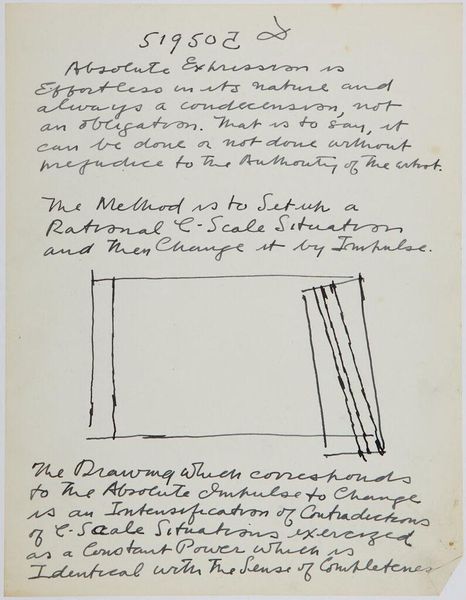 519505 D
Absolute Expression is
Effortless in its nature and
always a condecension, not
an obligation. That is to say, it
can be done or not done without
prejudice to the Authority of the artist.
The Method is to Set up a
Rational C-Scale Situation
and Then Change it by Impulse.
The Drawing which corresponds
to the Absolute Impulse to Change
is an Intensification of Contradictions
of C-Scale Situations exercized
as a Constant Power which is
Identical with The Sense of Completeness